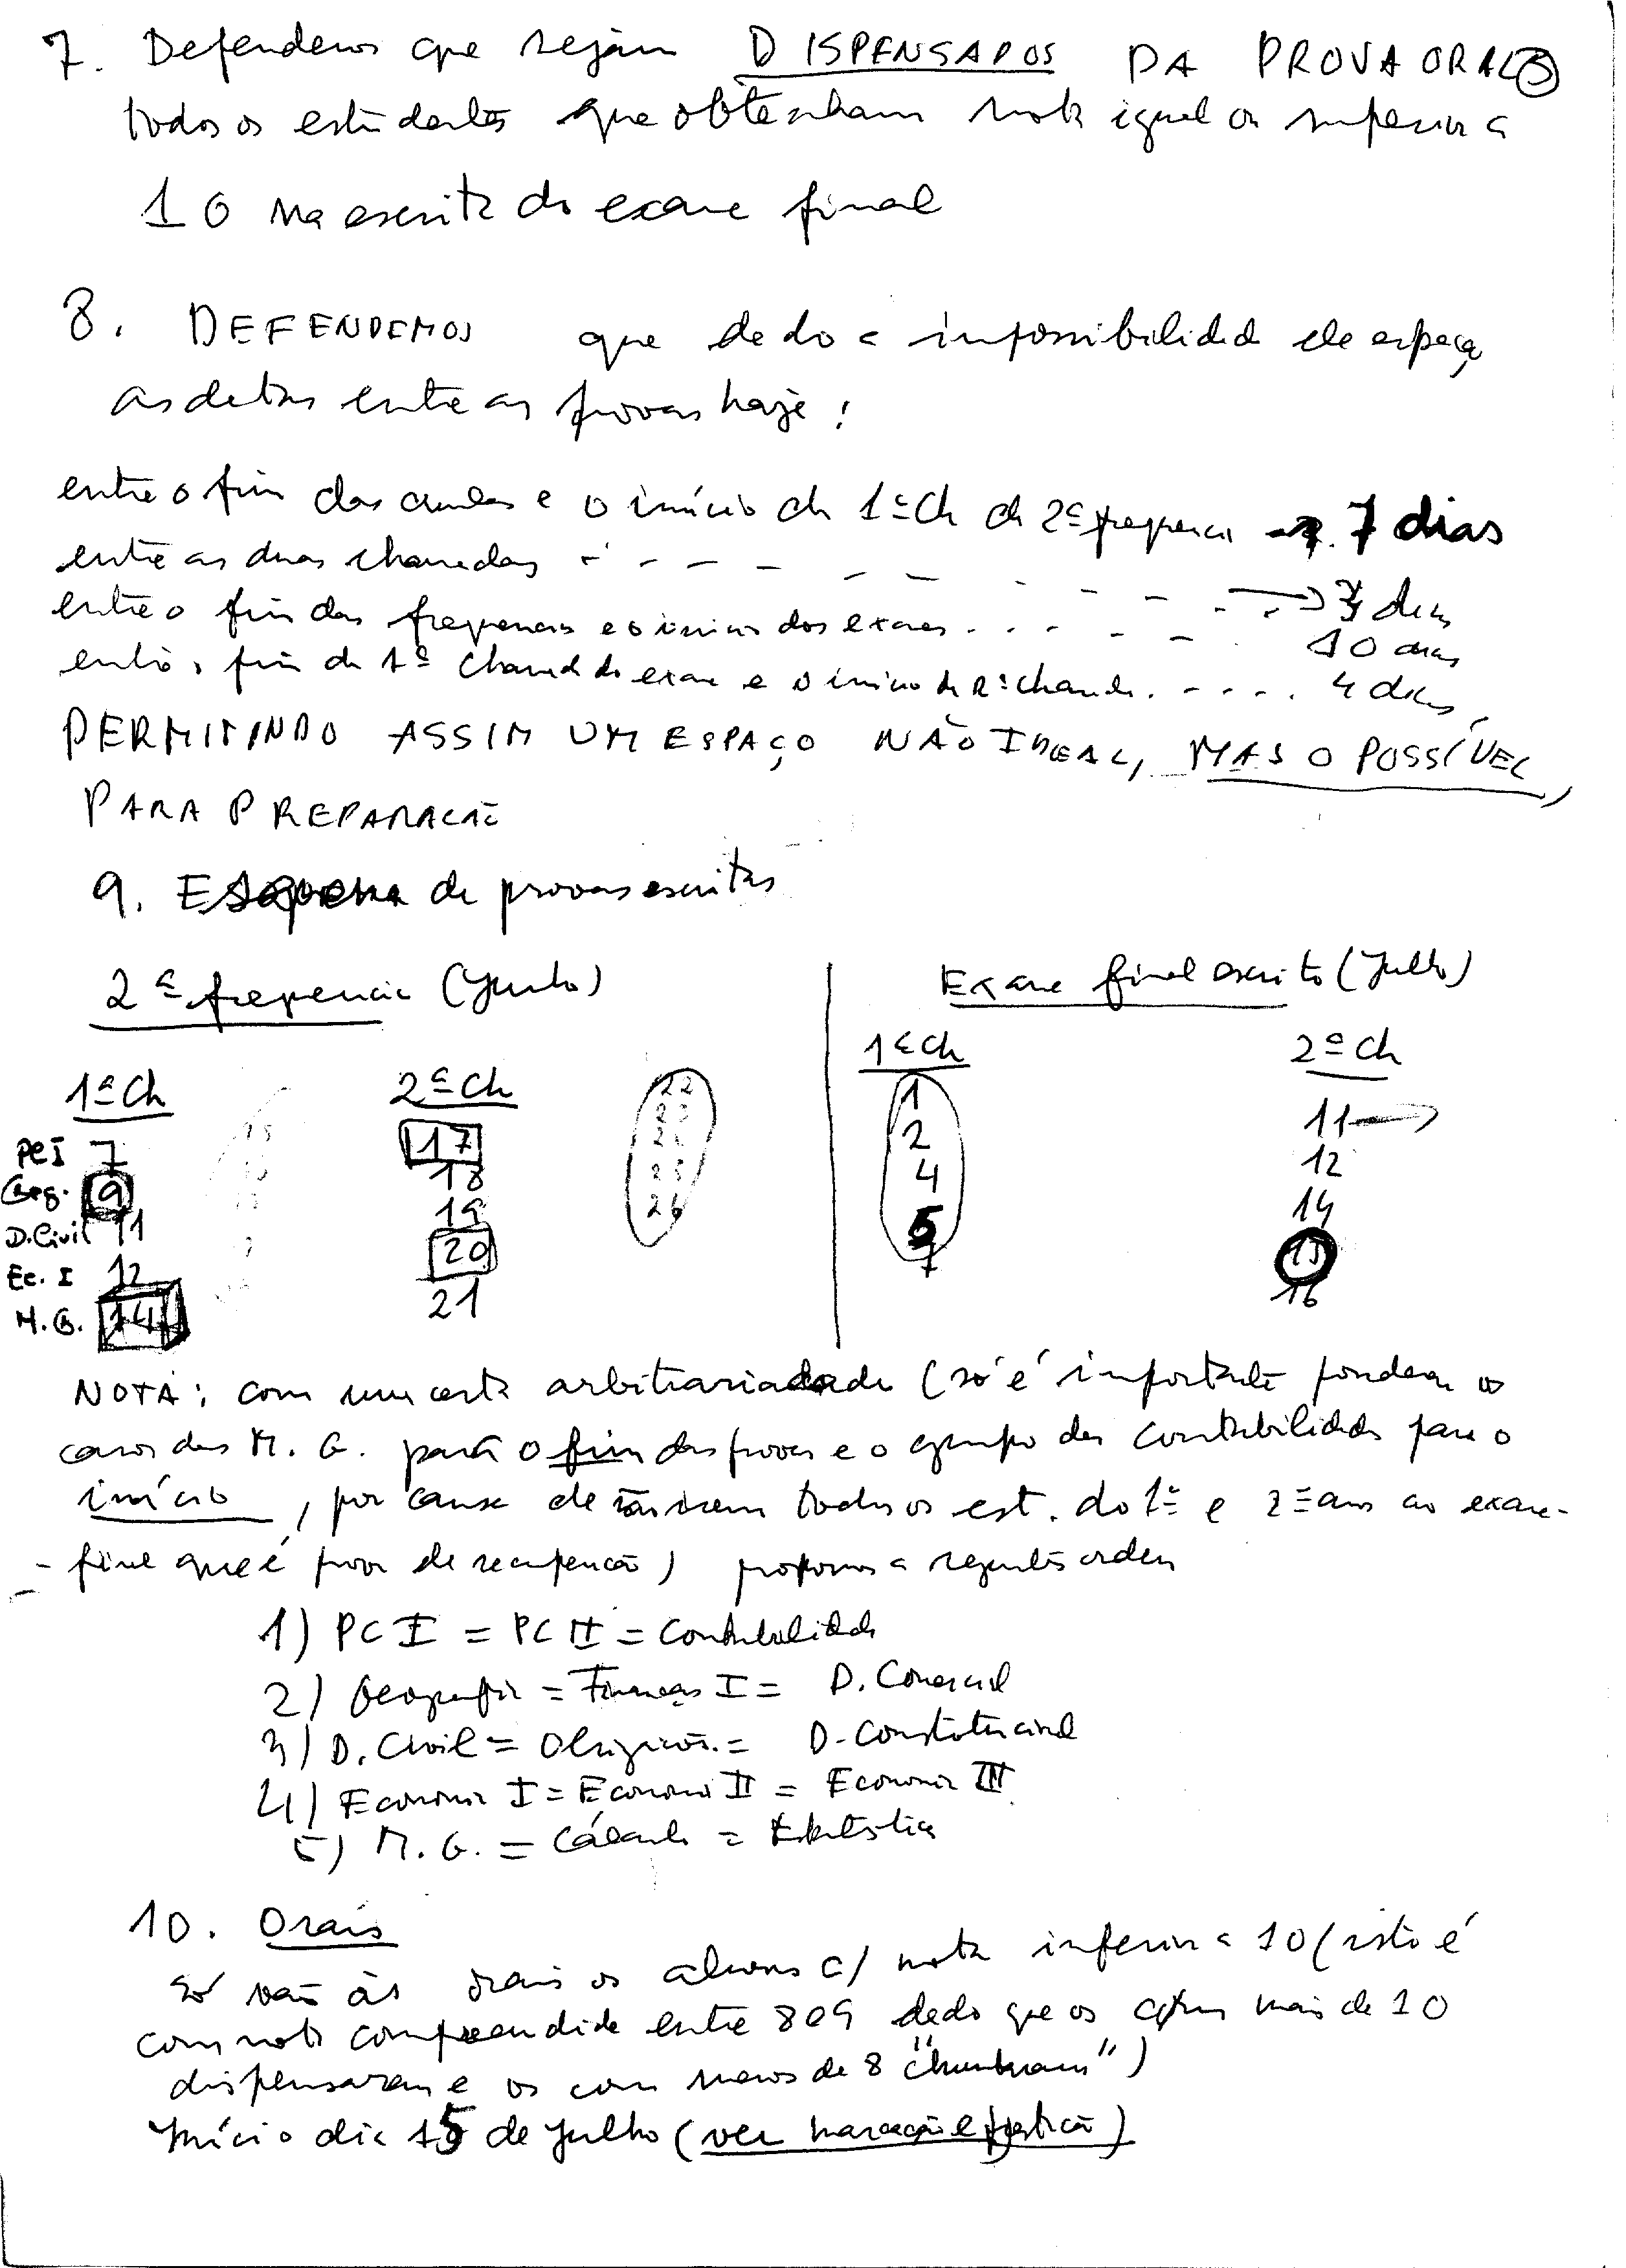 7. Defendemos que sejam DISPENSADOS DA PROVA ORAL 3
todos os estudantes que obtenham nota igual ou superior a
10 na escrita do exame final
8. DEFENDEMOS que dado a impossibilidade de espaçar
as datas entre as provas haja:
entre o fim das aulas e o início da 1ª Ch da 2ª frequencia 7 dias
entre as duas chamadas - - - - - - - - → dias
entre o fim das frequencias e o inicio dos exames . . . - - - 10 dias
entre o fim da 1ª Chamada do exame e o inicio da 2ª Chamada. - - . . . 4 dias,
PERMITINDO ASSIM UM ESPAÇO NÃO IDEAL, MAS O POSSÍVEL,
PARA PREPARAÇÃO
9. Esquema de provas escritas
2ª frequencia (Junho)
Exame final escrito (Julho)
1ª Ch
2ª Ch
1ª Ch
2ª Ch
PCI 7
Geog. 9
D. Civil 11
Ec. I 12
M.G. 14
17
18
19
20
21
22
23
24
25
26
1
2
4
5
7
11 →
12
14
15
16
NOTA: com uma certa arbitrariedade (só é importante ponderar os
casos das M. G. para o fim das provas e o grupo das Contabilidades para o
início, por causa de irem todos os est. do 1º e 2º ano ao exame-
-final que é prova de recuperação) propomos a seguinte ordem
1) PC I = PC II = Contabilidade
2) Geografia = Finanças I = D. Comercial
3) D. Civil = Obrigações = D. Constitucional
4) Economia I = Economia II = Economia III
5) M. G. = Cálculo = Estatística
10. Orais
Só vão às orais os alunos c/ nota inferior a 10 (isto é
com nota compreendida entre 8 e 9 dado que os com mais de 10
dispensaram e os com menos de 8 "chumbaram")
Início dia 15 de Julho (ver marcação e justificação)